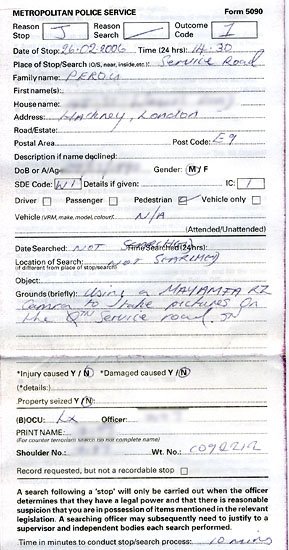 METROPOLITAN POLICE SERVICE Form 5090
Reason Stop J Reason Search Outcome Code I
Date of Stop: 26-02-2006 Time (24 hrs): 14:30
Place of Stop/Search (O/S, near, inside, etc.): Service Road
Family name: PEROU
First name(s):
House name:
Address: Hackney, London
Road/Estate:
Postal Area Post Code: E9
Description if name declined:
DoB or A/Age Gender: M/F
SDE Code: W1 Details if given: IC: 1
Driver Passenger Pedestrian Vehicle only
Vehicle (VRM, make, model, colour). N/A
(Attended/Unattended)
Date Searched: NOT SEARCHED Time Searched (24hrs):
Location of Search: NOT SEARCHED
(if different from place of stop/search)
Object:
Grounds (briefly): Using a MAMIYA RZ
camera to take pictures on
the Service road.
*Injury caused Y / N *Damaged caused Y / N
(*details:)
Property seized Y / N:
(B)OCU: Officer:
PRINT NAME:
(For counter terrorism search do not complete name)
Shoulder No.: Wt. No.:
Record requested, but not a recordable stop
A search following a 'stop' will only be carried out when the officer
determines that they have a legal power and that there is reasonable
suspicion that you are in possession of items mentioned in the relevant
legislation. A searching officer may subsequently need to justify to a
supervisor and independent bodies each search performed.
Time in minutes to conduct stop/search process: 10 mins